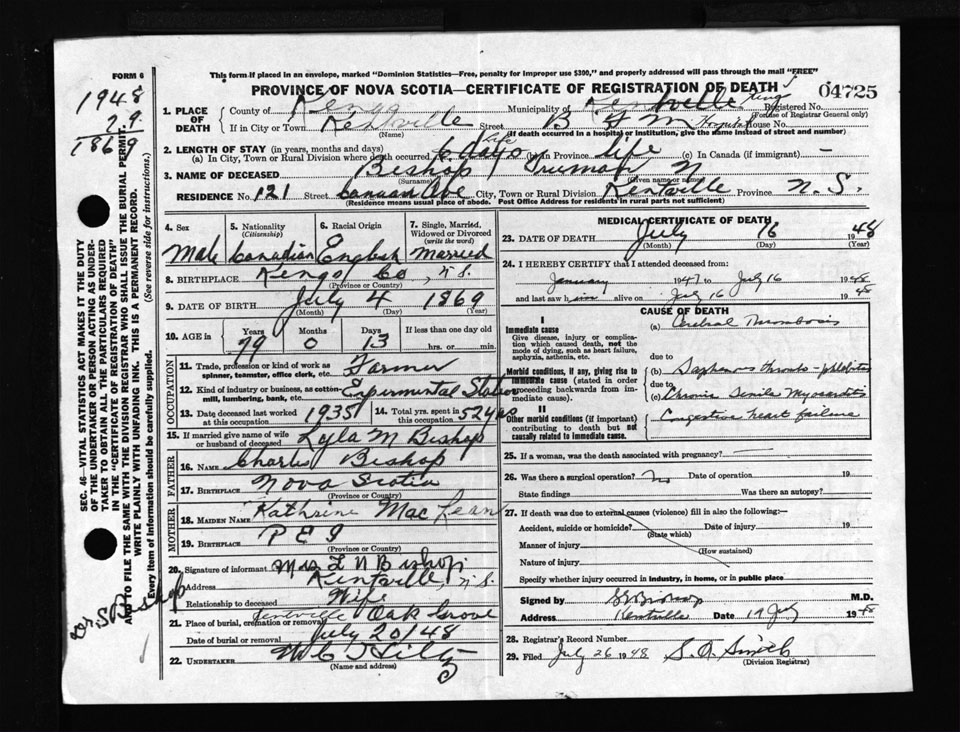 FORM 6
This form if placed in an envelope, marked "Dominion Statistics—Free, penalty for improper use $300," and properly addressed will pass through the mail "FREE"
PROVINCE OF NOVA SCOTIA—CERTIFICATE OF REGISTRATION OF DEATH
04725
1948
79
1869
1. PLACE OF DEATH
County of Kings Municipality of Kentville Kings Registered No.
(For use of Registrar General only)
If in City or Town Kentville Street B F M Hospital House No.
(Name) (If death occurred in a hospital or institution, give the same instead of street and number)
2. LENGTH OF STAY (in years, months and days)
(a) In City, Town or Rural Division where death occurred 6 days Life (b) in Province life (c) In Canada (if immigrant) —
3. NAME OF DECEASED Bishop Truman N
(Surname) (Given name or names)
RESIDENCE No. 121 Street Canaan Ave City, Town or Rural Division Kentville Province N. S.
(Residence means usual place of abode. Post Office Address for residents in rural parts not sufficient)
4. Sex Male
5. Nationality (Citizenship) Canadian
6. Racial Origin English
7. Single, Married, Widowed or Divorced (write the word) Married
8. BIRTHPLACE Kings Co, N.S.
(Province or Country)
9. DATE OF BIRTH July 4 1869
(Month) (Day) (Year)
10. AGE in Years Months Days If less than one day old
79 0 13 hrs. or min.
OCCUPATION
11. Trade, profession or kind of work as spinner, teamster, office clerk, etc. Farmer
12. Kind of industry or business, as cotton-mill, lumbering, bank, etc. Experimental Station
13. Date deceased last worked at this occupation 1935
14. Total yrs. spent in this occupation 52 yrs
15. If married give name of wife or husband of deceased Lyla M Bishop
FATHER
16. NAME Charles Bishop
17. BIRTHPLACE Nova Scotia
(Province or Country)
MOTHER
18. MAIDEN NAME Kathrine MacLean
19. BIRTHPLACE P E I
(Province or Country)
20. Signature of informant Mrs T N Bishop
Address Kentville, N.S.
Relationship to deceased Wife
21. Place of burial, cremation or removal Kentville Oak Grove
Date of burial or removal July 20/48
22. UNDERTAKER
(Name and address)
MEDICAL CERTIFICATE OF DEATH
23. DATE OF DEATH July 16 1948
(Month) (Day) (Year)
24. I HEREBY CERTIFY that I attended deceased from:
January 1947 to July 16 1948
and last saw him alive on July 16 1948
CAUSE OF DEATH
I
Immediate cause
Give disease, injury or complication which caused death, not the mode of dying, such as heart failure, asphyxia, asthenia, etc.
(a) Cerebral Thrombosis
due to
Morbid conditions, if any, giving rise to immediate cause (stated in order proceeding backwards from immediate cause).
(b) Saphenous Thrombo-phlebitis
due to
(c) Chronic Senile Myocarditis
II
Other morbid conditions (if important) contributing to death but not causally related to immediate cause.
Congestive heart failure
25. If a woman, was the death associated with pregnancy? —
26. Was there a surgical operation? No Date of operation 19
State findings Was there an autopsy?
27. If death was due to external causes (violence) fill in also the following:—
Accident, suicide or homicide? Date of injury 19
(State which)
Manner of injury
(How sustained)
Nature of injury
Specify whether injury occurred in industry, in home, or in public place
Signed by M.D.
Address Kentville Date 19 July 1948
28. Registrar's Record Number
29. Filed July 26 1948 S. A. Smith
(Division Registrar)
SEC. 46—VITAL STATISTICS ACT MAKES IT THE DUTY OF THE UNDERTAKER OR PERSON ACTING AS UNDERTAKER TO OBTAIN ALL THE PARTICULARS REQUIRED IN THE "CERTIFICATE OF REGISTRATION OF DEATH" AND TO FILE THE SAME WITH THE DIVISION REGISTRAR WHO SHALL ISSUE THE BURIAL PERMIT.
WRITE PLAINLY WITH UNFADING INK. THIS IS A PERMANENT RECORD.
Every item of information should be carefully supplied. (See reverse side for instructions.)